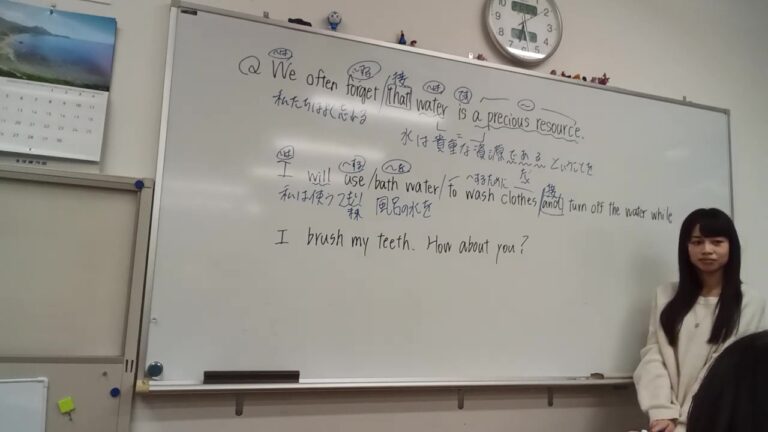 〜は 〜する 接 〜は です 〜
Q We often forget / that water is a precious resource.
私たちはよく忘れる
水は貴重な資源であるということを
〜は 〜する 〜を 〜するために 接
I will use / bath water / to wash clothes / and turn off the water while
私は使うつもり 風呂の水を
I brush my teeth. How about you?